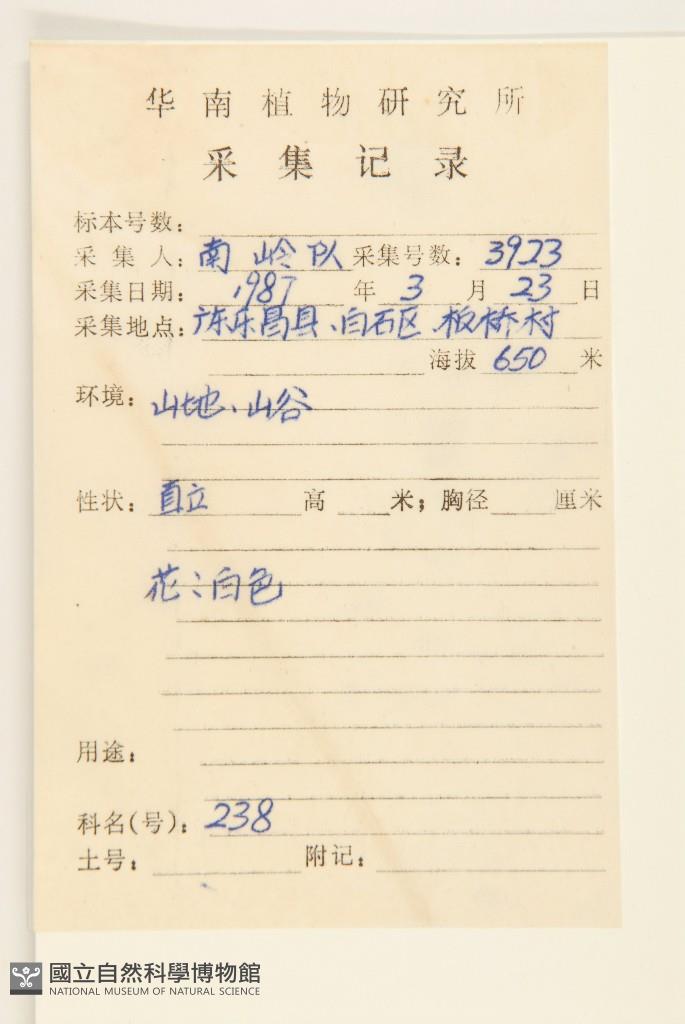 华南植物研究所
采集记录
标本号数：
采集人：南岭队 采集号数：3923
采集日期：1987年3月23日
采集地点：广东乐昌县、白石区、板桥村
海拔650米
环境：山地、山谷
性状：直立 高 米；胸径 厘米
花：白色
用途：
科名(号)：238
土号： 附记：
國立自然科學博物館
NATIONAL MUSEUM OF NATURAL SCIENCE